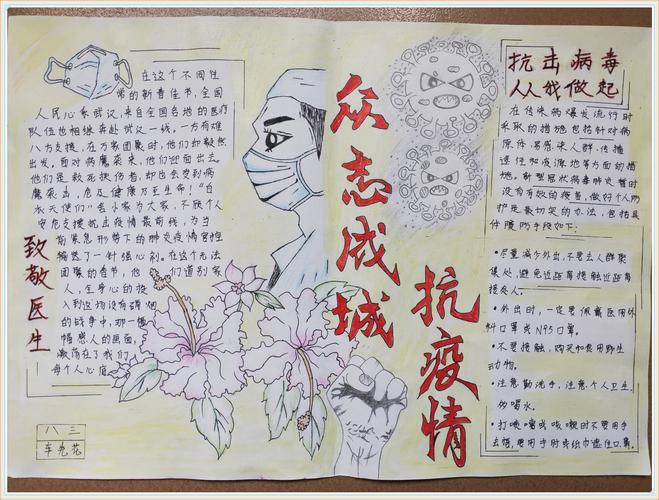 在这个不同往
常的新春佳节，全国
人民心系武汉，来自全国各地的医疗
队伍也相继奔赴武汉一线。一方有难
八方支援，在万家团聚时，他们却毅然
出发。面对病魔袭来，他们迎面出去。
他们是救死扶伤者，却也会受到病
魔袭击，危及健康乃至生命！“白
衣天使们”舍小家为大家，不顾个人
安危支援抗击疫情最前线，为当
前紧急形势下的肺炎疫情容控
输送了一针强心剂。在这个无法
团聚的春节，他们道别家
人，全身心的投
入到这场没有硝烟
的战争中，那一幕
幕感人的画面，
激荡在了我们
每个人心底
致敬医生
八三
车尧花
众志成城
抗疫情
抗击病毒
从我做起
在传染病爆发流行时
采取的措施包括针对病
原体、易感染人群、传播
途径和疫源地等方面的措
施，新型冠状病毒肺炎暂时
没有有效的疫苗，做好个人防
护是最切实的办法，包括具
体预防手段如下：
·尽量减少外出，不要去人群聚
集处，避免近距离接触近距离
接触人。
·外出时，一定要佩戴医用外
科口罩或N95口罩。
·不要接触，购买和食用野生
动物。
·注意勤洗手，注意个人卫生，
多喝水。
·打喷嚏或咳嗽时不要用手
去捂，要用手肘或纸巾遮住口鼻。